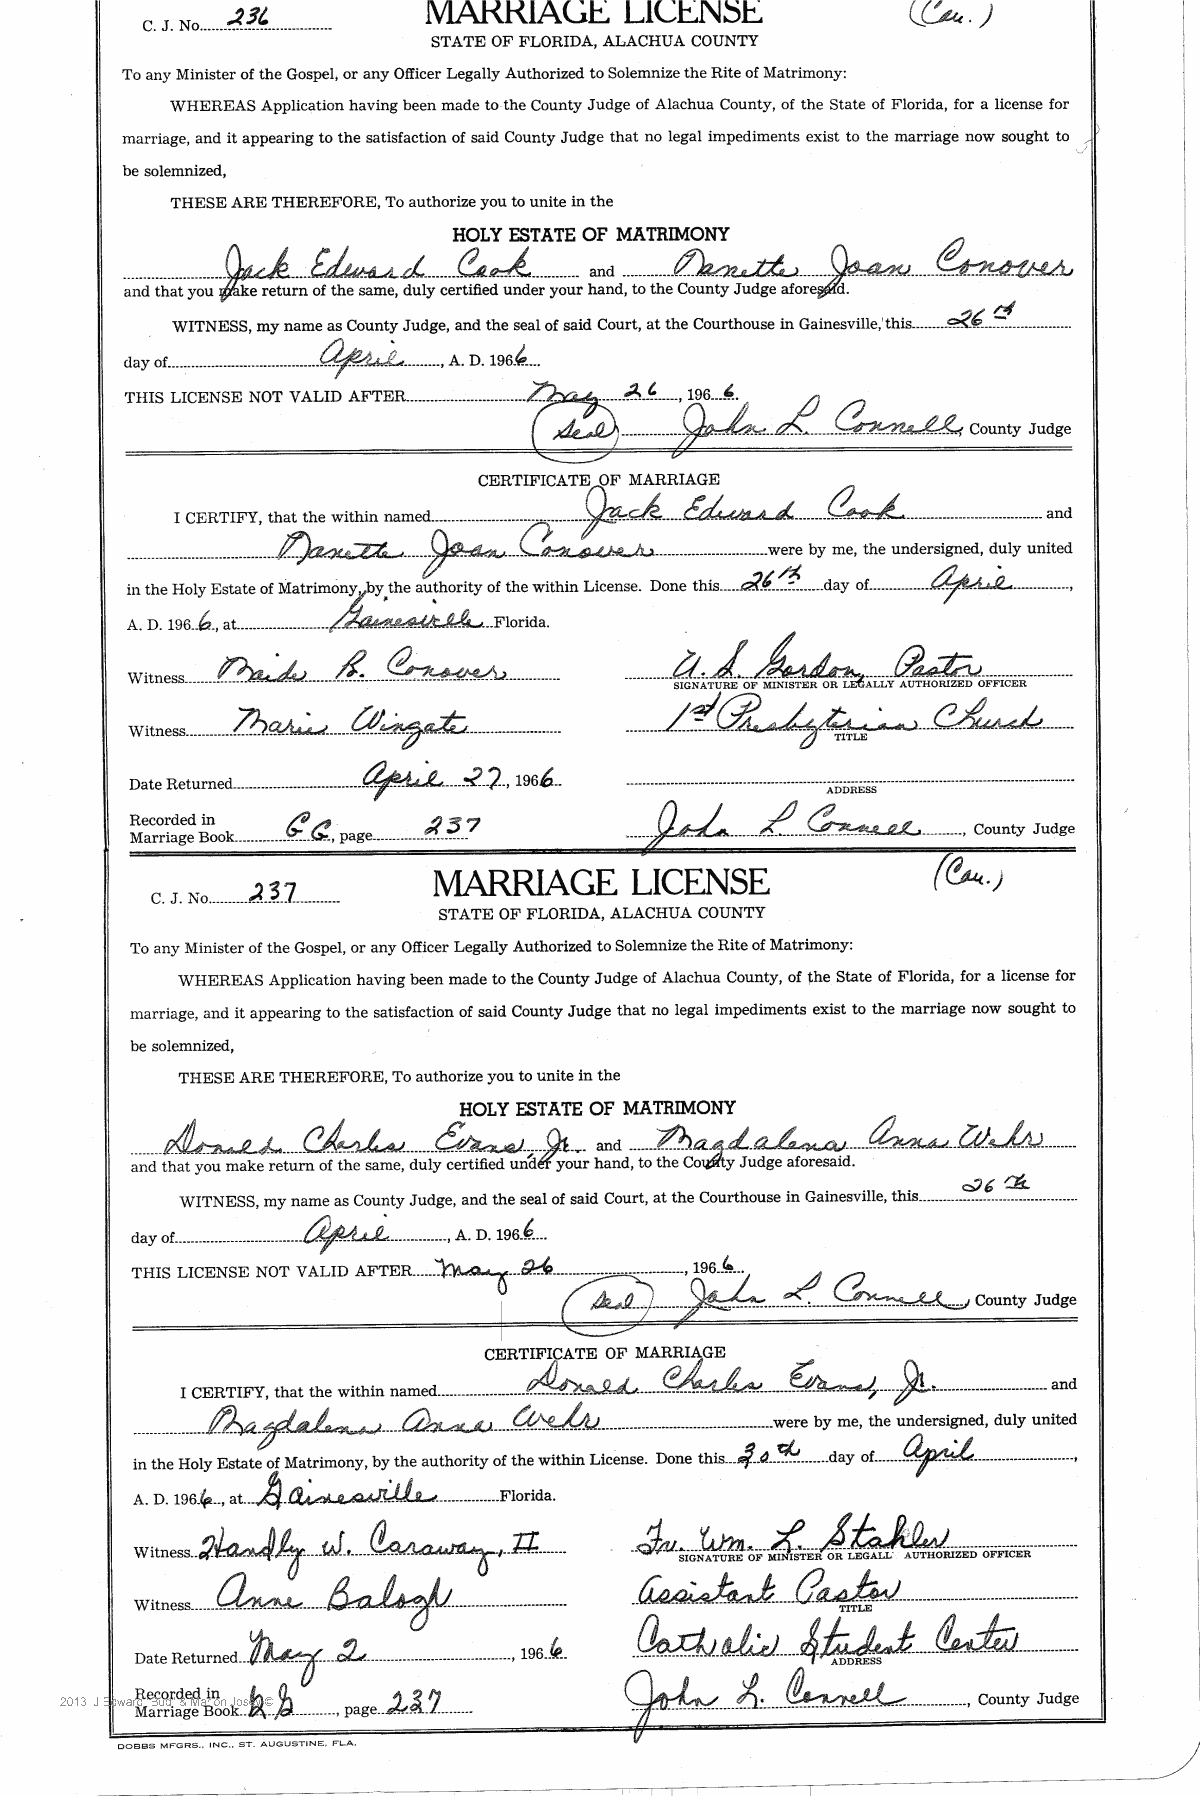 C. J. No. 236 MARRIAGE LICENSE (Cau.)
STATE OF FLORIDA, ALACHUA COUNTY
To any Minister of the Gospel, or any Officer Legally Authorized to Solemnize the Rite of Matrimony:
WHEREAS Application having been made to the County Judge of Alachua County, of the State of Florida, for a license for
marriage, and it appearing to the satisfaction of said County Judge that no legal impediments exist to the marriage now sought to
be solemnized,
THESE ARE THEREFORE, To authorize you to unite in the
HOLY ESTATE OF MATRIMONY
Jack Edward Cook and Nanette Joan Conover
and that you make return of the same, duly certified under your hand, to the County Judge aforesaid.
WITNESS, my name as County Judge, and the seal of said Court, at the Courthouse in Gainesville, this 26th
day of April, A. D. 1966
THIS LICENSE NOT VALID AFTER May 26, 1966.
(Seal) John L. Connell, County Judge
CERTIFICATE OF MARRIAGE
I CERTIFY, that the within named Jack Edward Cook and
Nanette Joan Conover were by me, the undersigned, duly united
in the Holy Estate of Matrimony, by the authority of the within License. Done this 26th day of April,
A. D. 1966, at Gainesville Florida.
Witness B. Conover U. S. Gordon, Pastor
SIGNATURE OF MINISTER OR LEGALLY AUTHORIZED OFFICER
Witness Marie Wingate 1st Presbyterian Church
TITLE
Date Returned April 27, 1966
ADDRESS
Recorded in
Marriage Book GG, page 237 John L Connell, County Judge
C. J. No. 237 MARRIAGE LICENSE (Cau.)
STATE OF FLORIDA, ALACHUA COUNTY
To any Minister of the Gospel, or any Officer Legally Authorized to Solemnize the Rite of Matrimony:
WHEREAS Application having been made to the County Judge of Alachua County, of the State of Florida, for a license for
marriage, and it appearing to the satisfaction of said County Judge that no legal impediments exist to the marriage now sought to
be solemnized,
THESE ARE THEREFORE, To authorize you to unite in the
HOLY ESTATE OF MATRIMONY
Donald Charles Evans, Jr. and Magdalena Anna Wehr
and that you make return of the same, duly certified under your hand, to the County Judge aforesaid.
WITNESS, my name as County Judge, and the seal of said Court, at the Courthouse in Gainesville, this 26th
day of April, A. D. 1966
THIS LICENSE NOT VALID AFTER May 26, 1966.
(Seal) John L. Connell, County Judge
CERTIFICATE OF MARRIAGE
I CERTIFY, that the within named Donald Charles Evans, Jr. and
Magdalena Anna Wehr were by me, the undersigned, duly united
in the Holy Estate of Matrimony, by the authority of the within License. Done this 30th day of April,
A. D. 1966, at Gainesville Florida.
Witness Handly W. Caraway, II Fr. Wm. L. Stahler
SIGNATURE OF MINISTER OR LEGALL AUTHORIZED OFFICER
Witness Anne Balogh Assistant Pastor
TITLE
Date Returned May 2, 1966 Catholic Student Center
ADDRESS
Recorded in
Marriage Book GG, page 237 John L. Connell, County Judge
DOBBS MFGRS., INC., ST. AUGUSTINE, FLA.